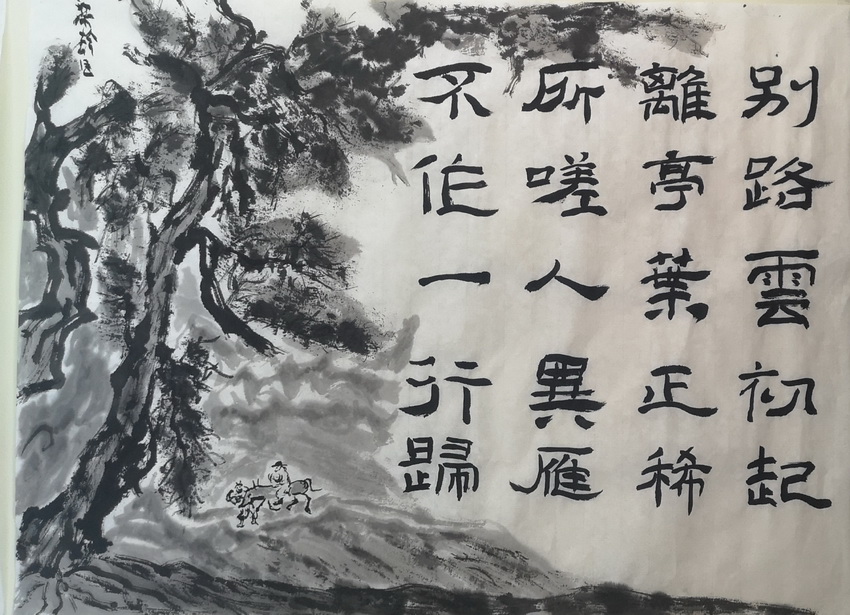 別路雲初起
離亭葉正稀
所嗟人異雁
不作一行歸